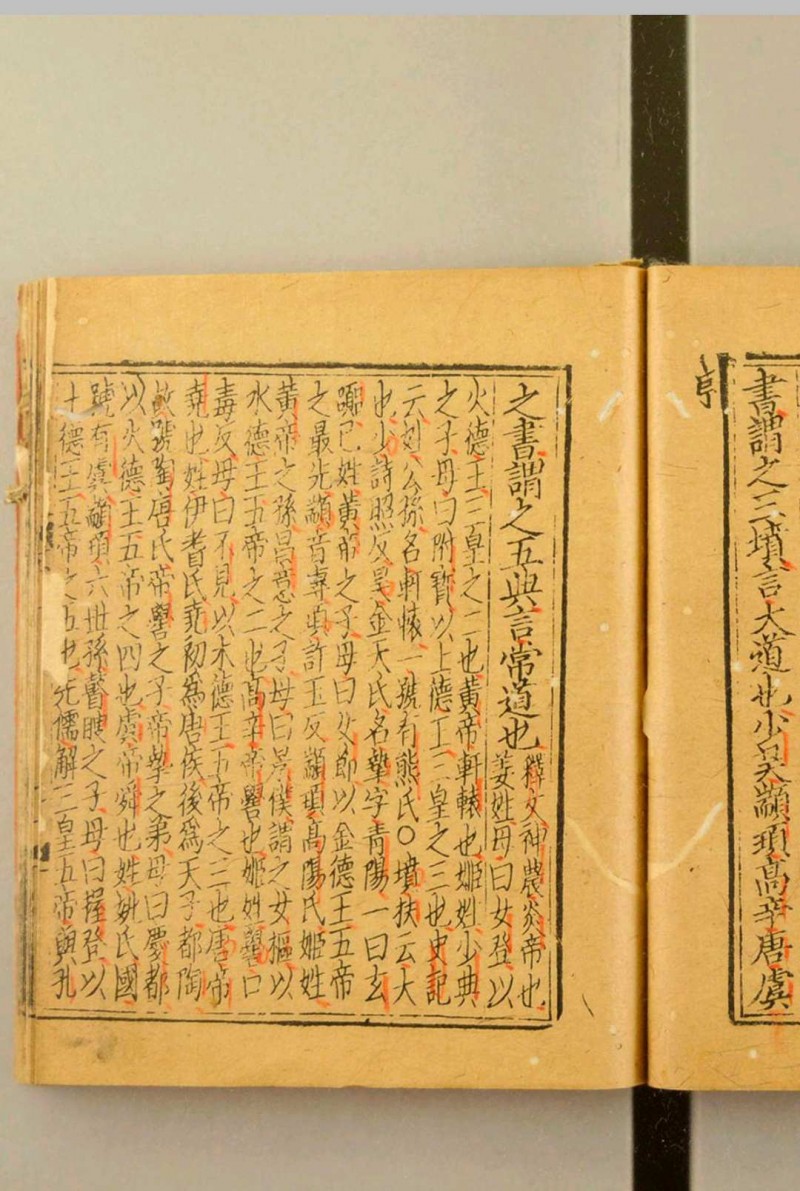 書謂之三墳言大道也少昊顓頊高辛唐虞
之書謂之五典言常道也
釋文神農炎帝也
姜姓母曰女登以
火德王三皇之二也黃帝軒轅也姬姓少典
之子母曰附寶以土德王三皇之三也史記
云姓公孫名軒轅一號有熊氏○墳扶云大
也少詩照反昊金天氏名摯字青陽一曰玄
囂己姓黃帝之子母曰女節以金德王五帝
之最先顓音專頊許玉反顓頊高陽氏姬姓
黃帝之孫昌意之子母曰景僕謂之女樞以
水德王五帝之二也高辛帝嚳也姬姓嚳口
毒反母曰不見以木德王五帝之三也唐帝
堯也姓伊耆氏堯初為唐侯後為天子都陶
故號陶唐氏帝嚳之子帝摯之弟母曰慶都
以火德王五帝之四也虞帝舜也姓姚氏國
號有虞顓頊六世孫瞽瞍之子母曰握登以
土德王五帝之五也先儒解三皇五帝與孔